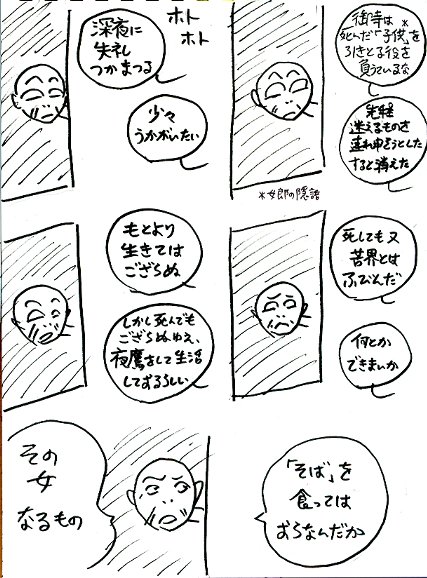 ホト
ホト
深夜に
失礼
つかまつる
少々
うかがいたい
御寺は*
死んだ「子供」を
引きとる役を
負うているな
先程
迷えるものを
連れ申そうとした
すると消えた
*女郎の隠語
もとより
生きては
ござらぬ
しかし死んでも
ござらぬゆえ、
夜鷹をして生活
しておるらしい
死しても又
苦界とは
ふびんだ
何とか
できまいか
その
女
なるもの
「そば」を
食っては
おらなんだか